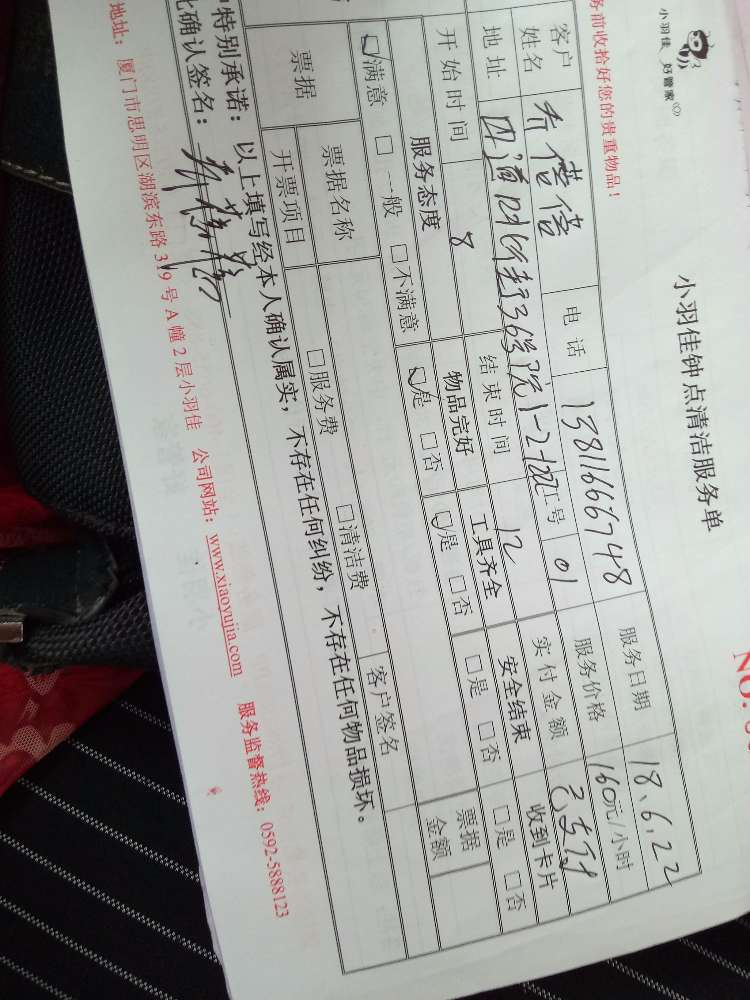 小羽佳 好管家
小羽佳钟点清洁服务单
NO.
务前收拾好您的贵重物品！
客户姓名 电话 13811666748 服务日期 18.6.22
地址 36号院1-2-122 工号 01 服务价格 160元/小时
开始时间 8 结束时间 12 实付金额 已支付
服务态度 物品完好 工具齐全 安全结束 收到卡片
☑满意 □一般 □不满意 ☑是 □否 ☑是 □否 □是 □否 □是 □否
票据 票据名称 票据金额
开票项目 □服务费 □清洁费 客户签名
特别承诺：以上填写经本人确认属实，不存在任何纠纷，不存在任何物品损坏。
此确认签名：
地址：厦门市思明区湖滨东路319号A幢2层小羽佳 公司网站：www.xiaoyujia.com 服务监督热线：0592-5888123